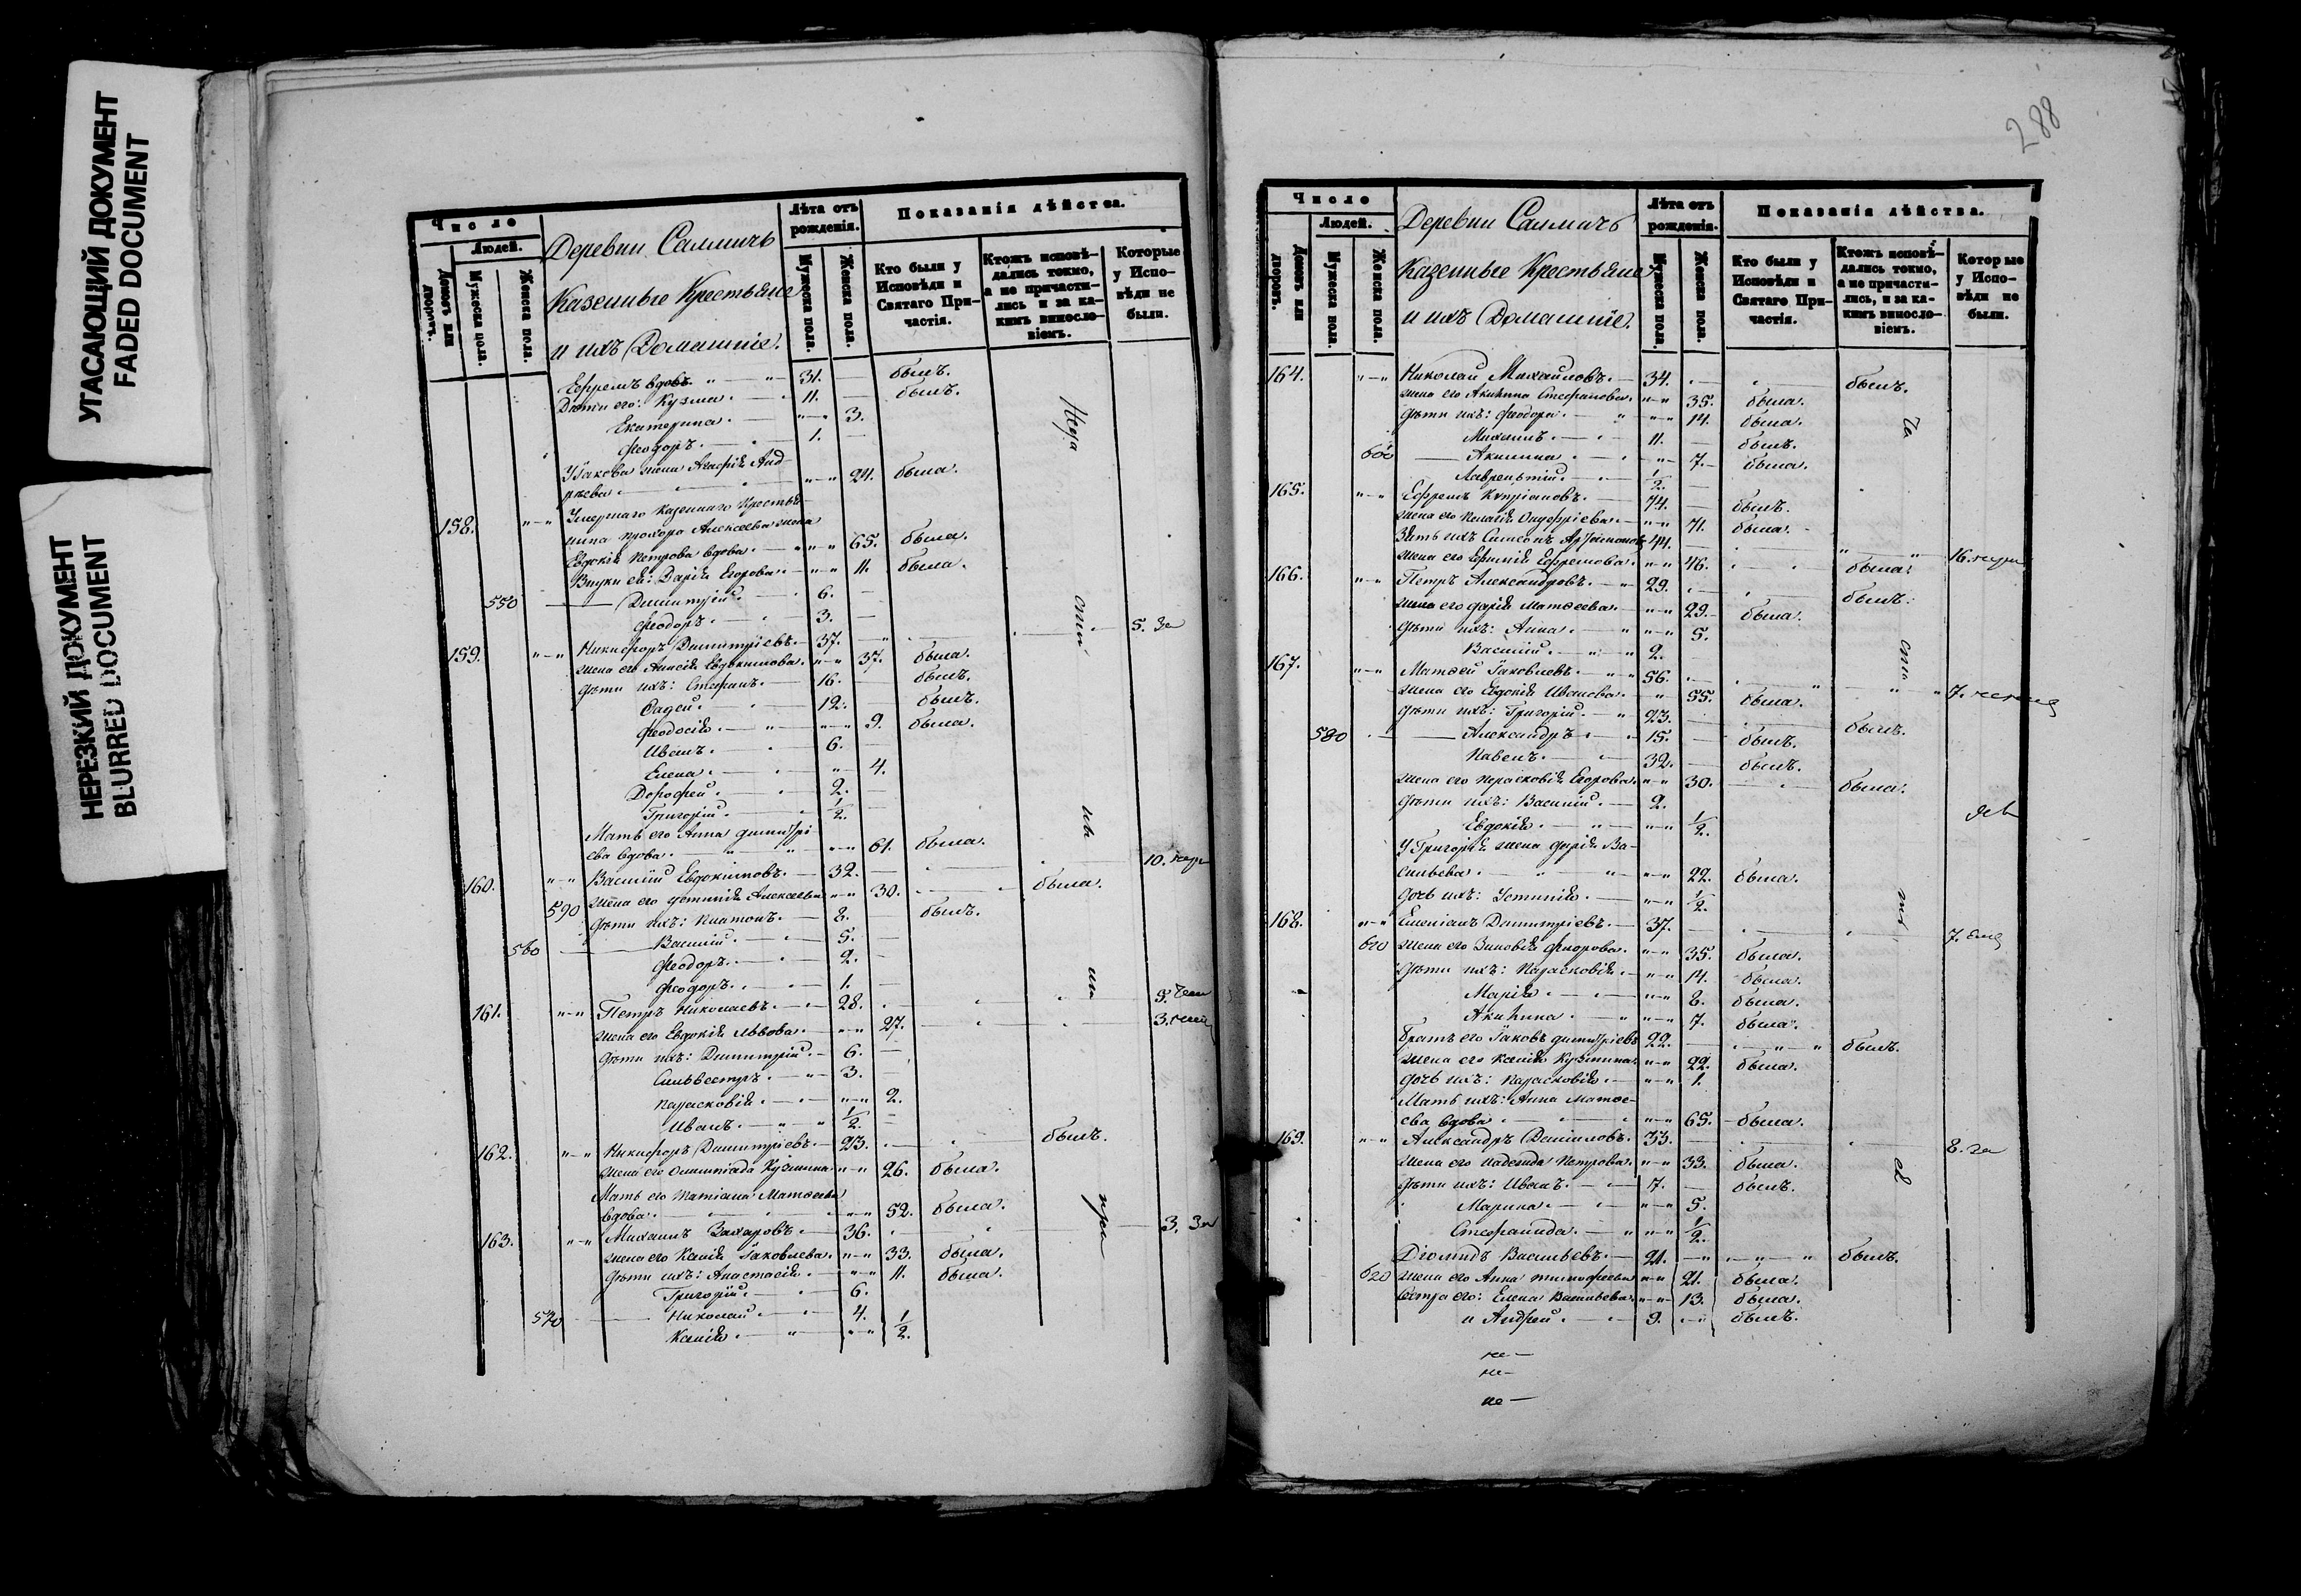 УГАСАЮЩИЙ ДОКУМЕНТ
FADED DOCUMENT
НЕРЕЗКИЙ ДОКУМЕНТ
BLURRED DOCUMENT
Число
Людей.
Домовъ или дворовъ.
Мужеска пола.
Женска пола.
Деревни Салмичь
Казенные Крестьяне
и ихъ Домашніе.
Лѣта отъ рожденія.
Мужеска пола.
Женска пола.
Показанія дѣйства.
Кто были у Исповѣди и Святаго Причастія.
Ктожъ исповѣдались токмо, а не причастились и за какимъ винословіемъ.
Которые у Исповѣди не были.
Ефремъ вдовъ. 31. — былъ.
Дѣти его: Кузма. 11. — былъ.
Екатерина. 3.
Феодоръ. 1. —
У Іакова жена Агафія Анд-
реева. 24. была.
158. Умершаго Казеннаго Крестья-
нина Прохора Алексеева жена
Евдокія Петрова вдова. 65. была.
Внуки ея: Дарія Егорова. 11. была.
550 Димитрій. 6. —
Феодоръ. 3. —
159. Никифоръ Димитріевъ. 37. 5. За
жена его Анисія Евдокимова. 37. была.
дѣти ихъ: Стефанъ. 16. былъ.
Фадей. 12. былъ.
Феодосія. 9. была.
Иванъ. 6. —
Елена. 4.
Дорофей. 2. —
Григорій. 1/2. —
Мать его Анна Димитрі-
ева вдова. 61. была.
160. Василій Евдокимовъ. 32. — 10.
590 жена его Алексеева 30. была.
дѣти ихъ: Платонъ. 8. былъ.
560 Василій. 5. —
Феодоръ. 2. —
Феодоръ. 1. —
161. Петръ Николаевъ. 28.
жена его Евдокія Львова. 27. 3.
дѣти ихъ: Димитрій. 6. —
Сильвестръ. 3. —
Парасковія. 2.
Иванъ. 1/2. —
162. Никифоръ Димитріевъ. 23. былъ.
жена его Олимпіада Кузмина 26. была.
Мать его Татіана Матѳеева
вдова. 52. была.
163. Михаилъ Захаровъ. 36. 3. За
жена его Ксенія Іаковлева. 33. была.
дѣти ихъ: Анастасія. 11. была.
Григорій. 6.
570 Николай. 4.
Ксенія. 1/2.
288
Число
Людей.
Домовъ или дворовъ.
Мужеска пола.
Женска пола.
Деревни Салмичь
Казенные Крестьяне
и ихъ Домашніе.
Лѣта отъ рожденія.
Мужеска пола.
Женска пола.
Показанія дѣйства.
Кто были у Исповѣди и Святаго Причастія.
Ктожъ исповѣдались токмо, а не причастились, и за каким винословіемъ.
Которые у Исповѣди не были.
164. Николай Михайловъ. 34. былъ.
жена его Акилина Стефанова. 35. была.
дѣти ихъ: Феодора. 14. была.
Михаилъ. 11. — былъ.
600 Акилина. 7. была.
Лаврентій. 1/2. —
165. Ефремъ Купріановъ. 74. былъ.
жена его Пелагія Онуфріева. 71. была.
Зять ихъ Симеонъ 44. 16.
жена его Ефимія Ефремова. 46. была.
166. Петръ Александровъ. 29. былъ.
жена его Дарія Матѳеева. 29. была.
дѣти ихъ: Анна. 5.
Василій. 2.
167. Матѳей Іаковлевъ. 56. 7.
жена его Евдокія Иванова. 55. была.
дѣти ихъ: Григорій. 23. былъ.
580 Александръ. 15. былъ.
Павелъ. 32. былъ.
жена его Парасковія Егорова. 30. была.
дѣти ихъ: Василій. 2.
Евдокія. 1/2.
У Григорія жена Дарія Ва-
сильева. 22. была.
дочь ихъ: Устинія. 1/2.
168. Емеліанъ Димитріевъ. 37. 7.
610 жена его Зиновія Феодорова. 35. была.
дѣти ихъ: Парасковія. 14. была.
Марія. 8. была.
Акилина. 7. была.
Братъ его Іаковъ Димитріевъ 22. былъ.
жена его Ксенія Кузмина 22. была.
дочь ихъ: Парасковія. 1.
Мать ихъ: Анна Матѳе-
ева вдова. 65. была.
169. Александръ Даниловъ. 33. 8. За
жена его Надежда Петрова. 33. была.
дѣти ихъ: Иванъ. 7. былъ.
Марина. 5.
Стефанида. 1/2.
Діомидъ Васильевъ. 21. былъ.
620 жена его Анна Тимофеева 21. была.
Сестра его: Елена Васильева 13. была.
и Андрей. 9. былъ.